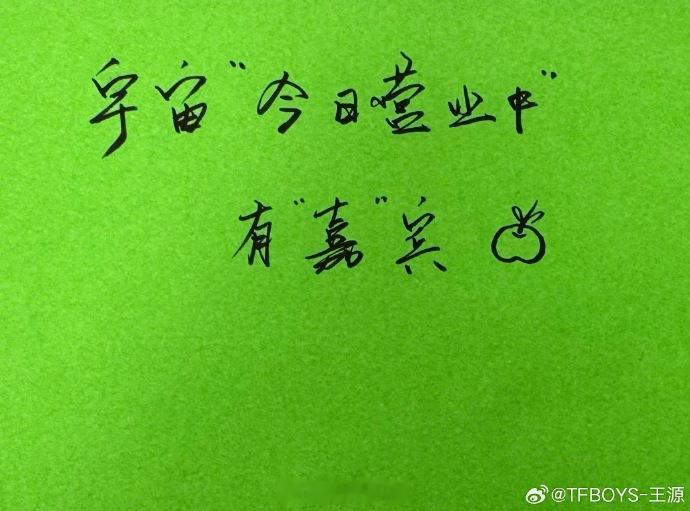 宇宙"今日营业中"
有"嘉"宾
@TFBOYS-王源